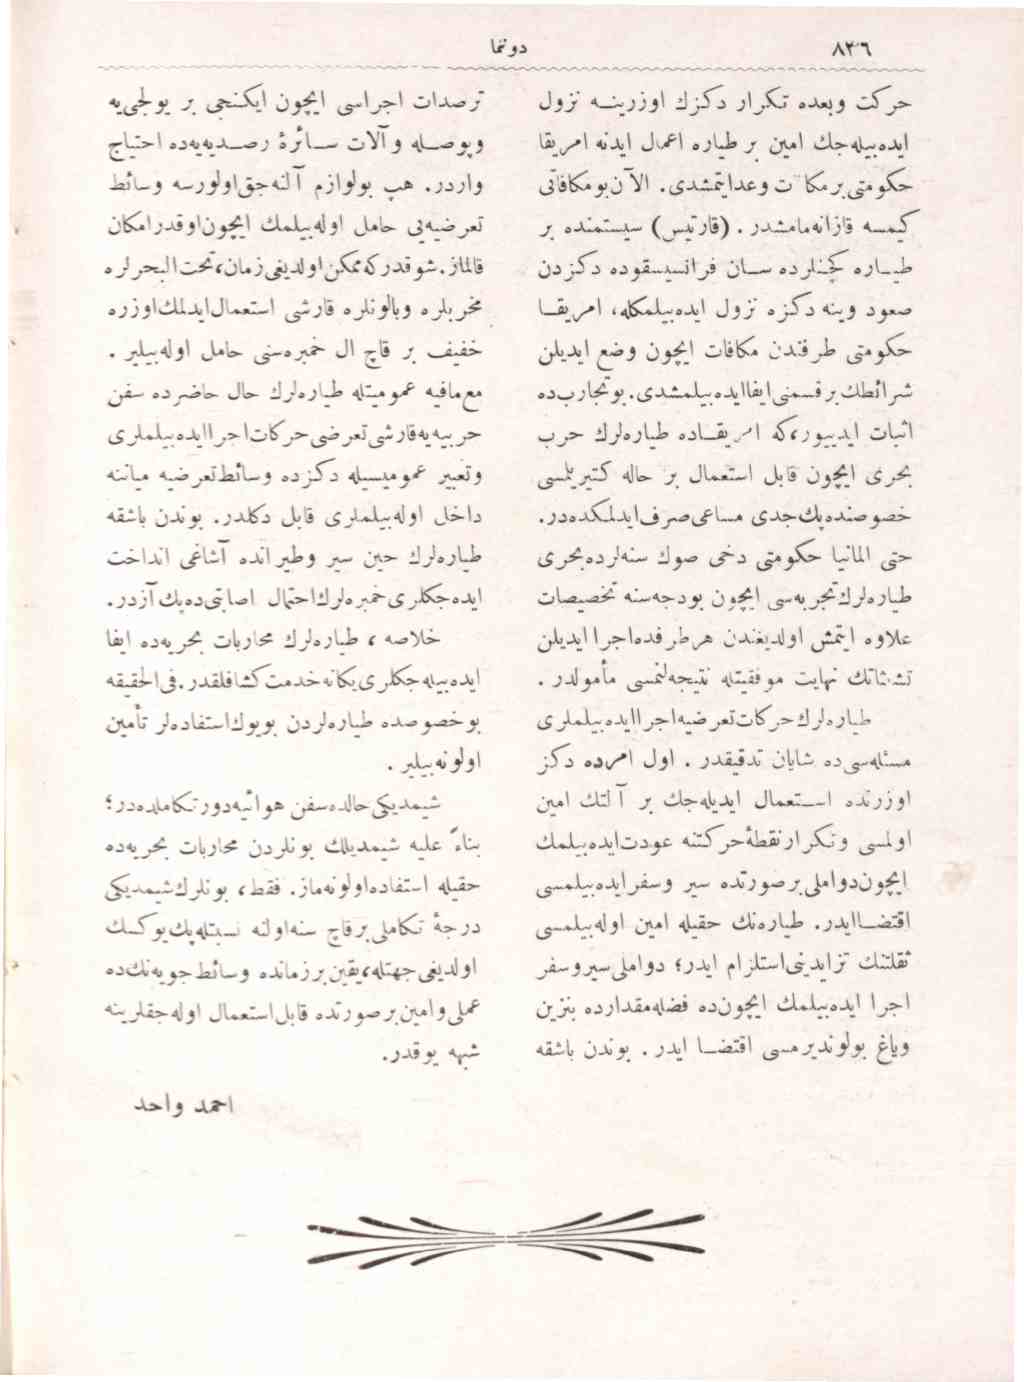 ٨٣٦
دوننما
حركت وبعده تكرار دكزك اوزرينـــه نزول
ايده‌بيله‌جك امين بر طياره اعمال ايدنه امريقا
حكومتى بر مكافات وعدايتمشدى. الآن بومكافاتى
كيمسه قازانه‌مامشدر. (قارتيس) سيستمنده بر
طيــاره كچنلرده ســان فرانسيسقوده دكزدن
صعود وينه دكزه نزول ايده‌بيلمكله، امريقــا
حكومتى طرفندن مكافات ايچون وضع ايديلن
شرائطك برقسمنى ايفاايده‌بيلمشدى. بوتجارب‌ده
اثبات ايدييور،كه امريقــاده طياره‌لرك حرب
بحرى ايچون قابل استعمال بر حاله كتيريلمسى
خصوصنده پك جدى مساعى صرف ايدلمكده‌در.
حتى المانيا حكومتى دخى صوك سنه‌لرده بحرى
طياره‌لرك تجربه‌سى ايچون بودجه‌سنه تخصيصات
علاوه ايتمش اولديغندن هرطرفده اجرا ايديلن
تشبثاتك نهايت موفقيتله نتيجه‌لنمسى مأمولدر.
طياره‌لرك حركات تعرضيه اجرا ايده‌بيلملرى
مسئله‌سى‌ده شايان تدقيقدر. اول امرده دكز
اوزرنده اســتعمال ايديله‌جك بر آلتك امين
اولمسى وتكرار نقطهٔ حركتنه عودت ايده‌بيلمك
ايچون دواملى برصورتده سير وسفر ايده‌بيلمسى
اقتضــا ايدر. طياره‌نك حقيله امين اوله‌بيلمسى
ثقلتنك تزايدينى استلزام ايدر؛ دواملى سيروسفر
اجرا ايده‌بيلمك ايچون‌ده فضله مقدارده بنزين
وياغ بولونديرمسى اقتضــا ايدر. بوندن باشقه
ترصدات اجراسى ايچون ايكنجى بر يولجى‌يه
وپوصــله وآلات ســائرهٔ رصــديه‌يه‌ده احتياج
واردر. هپ بولوازم آلنه‌جق اولورسه وسائط
تعرضيه‌يى حامل اوله‌بيلمك ايچون اوقدر امكان
قالماز. شوقدركه ممكن اولديغى زمان، تحت البحرلره
مخربلره وبالونلره قارشى استعمال ايدلمك اوزره
خفيف بر قاچ ال خمبره‌سنى حامل اوله‌بيلير.
مع‌مافيه عموميتله طياره‌لرك حال حاضرده سفن
حربيه‌يه قارشى تعرضى حركات اجرا ايده‌بيلملرى
وتعبير عموميسيله دكزده وسائط تعرضيه مياننه
داخل اوله‌بيلملرى قابل دكلدر. بوندن باشقه
طياره‌لرك حين سير وطيرانده آشاغى انداخت
ايده‌جكلرى خمبره‌لرك احتمال اصابتى‌ده پك آزدر.
خلاصه، طياره‌لرك محاربات بحريه‌ده ايفا
ايده‌بيله‌جكلرى يكانه خدمت كشافلقدر. فى الحقيقه
بوخصوصده طياره‌لردن بويوك استفاده‌لر تأمين
اولونه‌بيلير.
شيمديكى حالده سفن هوائيه دور تكاملده‌در؛
بناءً عليه شيمديلك بونلردن محاربات بحريه‌ده
حقيله استفاده اولونه‌ماز. فقط، بونلرك شيمديكى
درجهٔ تكاملى برقاچ سنه اولنه نسبتله پك يوكسك
اولديغى جهتله، يقين برزمانده وسائط جويه‌نك‌ده
عملى وامين برصورتده قابل استعمال اوله‌جقلرينه
شبهه يوقدر.
احمد واحد